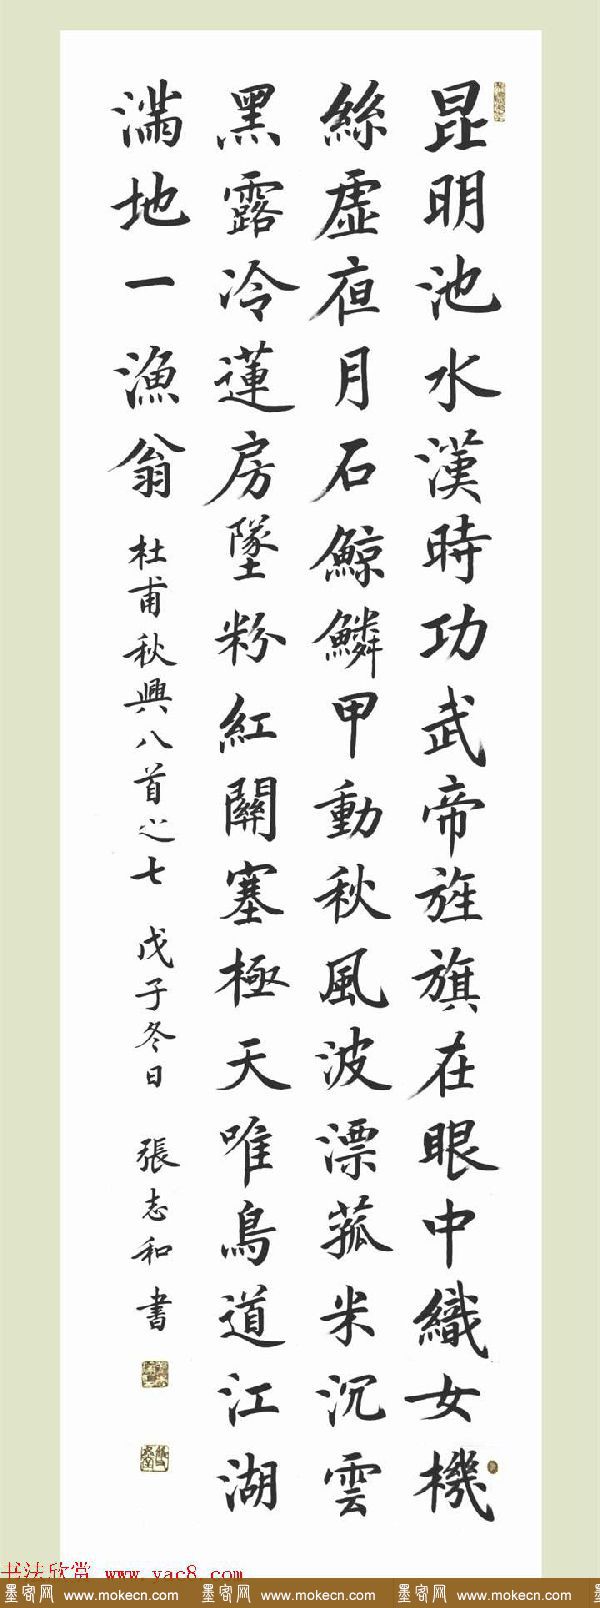 昆明池水漢時功武帝旌旗在眼中織女機
絲虛夜月石鯨鱗甲動秋風波漂菰米沉雲
黑露冷蓮房墜粉紅關塞極天唯鳥道江湖
滿地一漁翁
杜甫秋興八首之七 戊子冬日 張志和書
书法欣赏 www.yac8.com
墨客网 www.mokecn.com 墨客网 www.mokecn.com 墨客网 www.mokecn.com